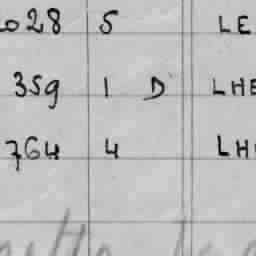 028 5 LE
359 1 D LHE
764 4 LH